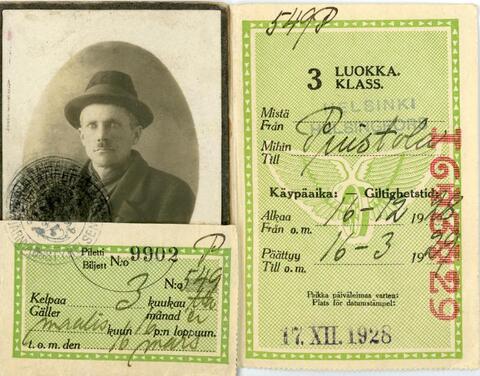 Piletti
Biljett N:o 9902 P
N:o 549
Kelpaa 3 kuukautta
Gäller månader
maalis kuun 16 p:n loppuun.
t. o. m. den 16 mars
549 P
3 LUOKKA.
KLASS.
HELSINKI
HELSINGFORS
Mistä
Från
Mihin Puistola
Till
Käypäaika: Giltighetstid:
Alkaa 16-12 1928
Från o. m.
Päättyy 16-3 1929
Till o. m.
Poikka päiväleimaa varten:
Plats för datumstämpel:
17. XII. 1928